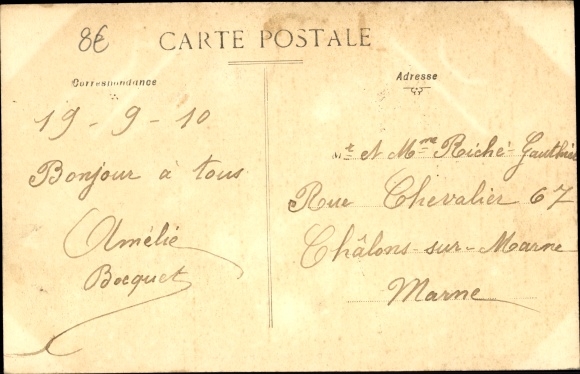 8€
CARTE POSTALE
Correspondance
Adresse
19 - 9 - 10
Bonjour à tous
Amélie
Bocquet
Mr et Mme Riché-Gauthier
Rue Chevalier 67
Châlons-sur-Marne
Marne